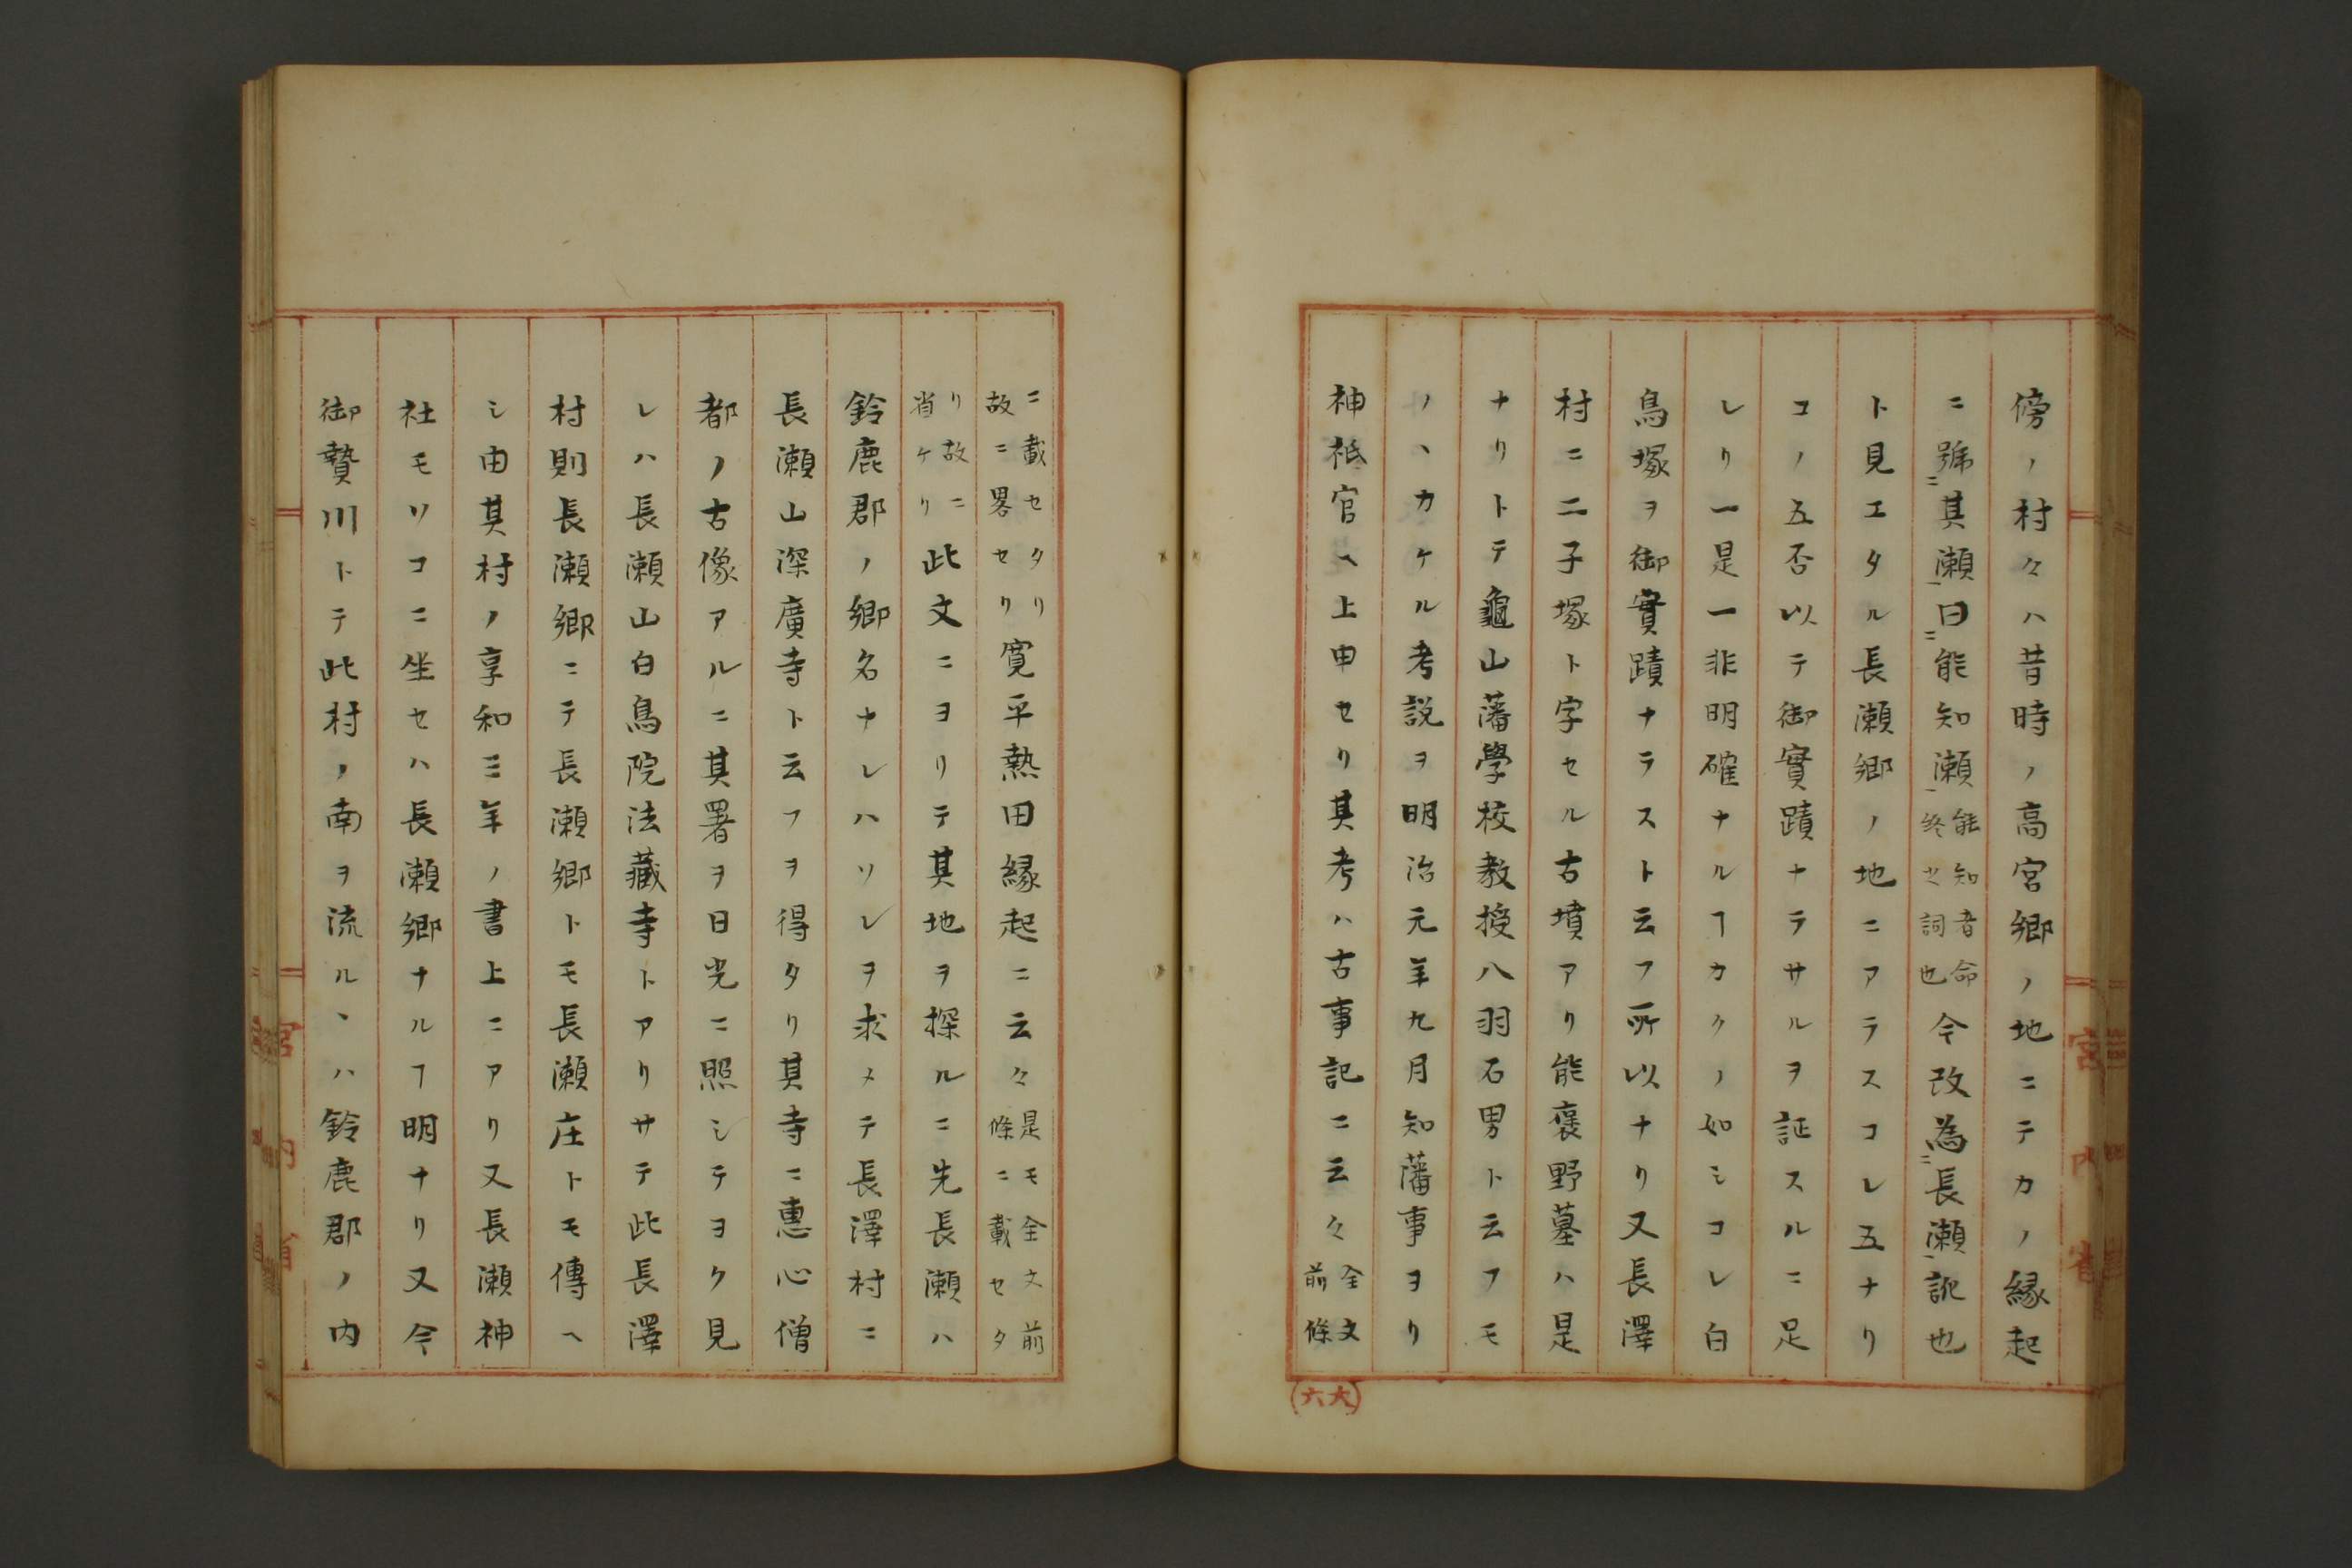 傍ノ村々ハ昔時ノ高宮郷ノ地ニテカノ縁起
ニ號ニ其瀬一曰ニ能知瀬一能知者命終之詞也今改為ニ長瀬一訛也
ト見エタル長瀬郷ノ地ニアラスコレ五ナリ
コノ五否以テ御實蹟ナラサルヲ証スルニ足
レリ一是一非明確ナルヿカクノ如シコレ白
鳥塚ヲ御實蹟ナラスト云フ所以ナリ又長澤
村ニ二子塚ト字セル古墳アリ能褒野墓ハ是
ナリトテ龜山藩學校教授八羽石男ト云フモ
ノヽカケル考説ヲ明治元年九月知藩事ヨリ
神祇官ヘ上申セリ其考ハ古事記ニ云々全文前條
ニ載セタリ故ニ畧セリ寛平熱田縁起ニ云々是モ全文前條ニ載セタ
リ故ニ省ケリ此文ニヨリテ其地ヲ探ルニ先長瀬ハ
鈴鹿郡ノ郷名ナレハソレヲ求メテ長澤村ニ
長瀬山深廣寺ト云フヲ得タリ其寺ニ惠心僧
都ノ古像アルニ其署ヲ日光ニ照シテヨク見
レハ長瀬山白鳥院法藏寺トアリサテ此長澤
村則長瀬郷ニテ長瀬郷トモ長瀬庄トモ傳ヘ
シ由其村ノ享和三年ノ書上ニアリ又長瀬神
社モソコニ坐セハ長瀬郷ナルヿ明ナリ又今
御贄川トテ此村ノ南ヲ流ルヽハ鈴鹿郡ノ内
宮内省
宮内省
(六大)